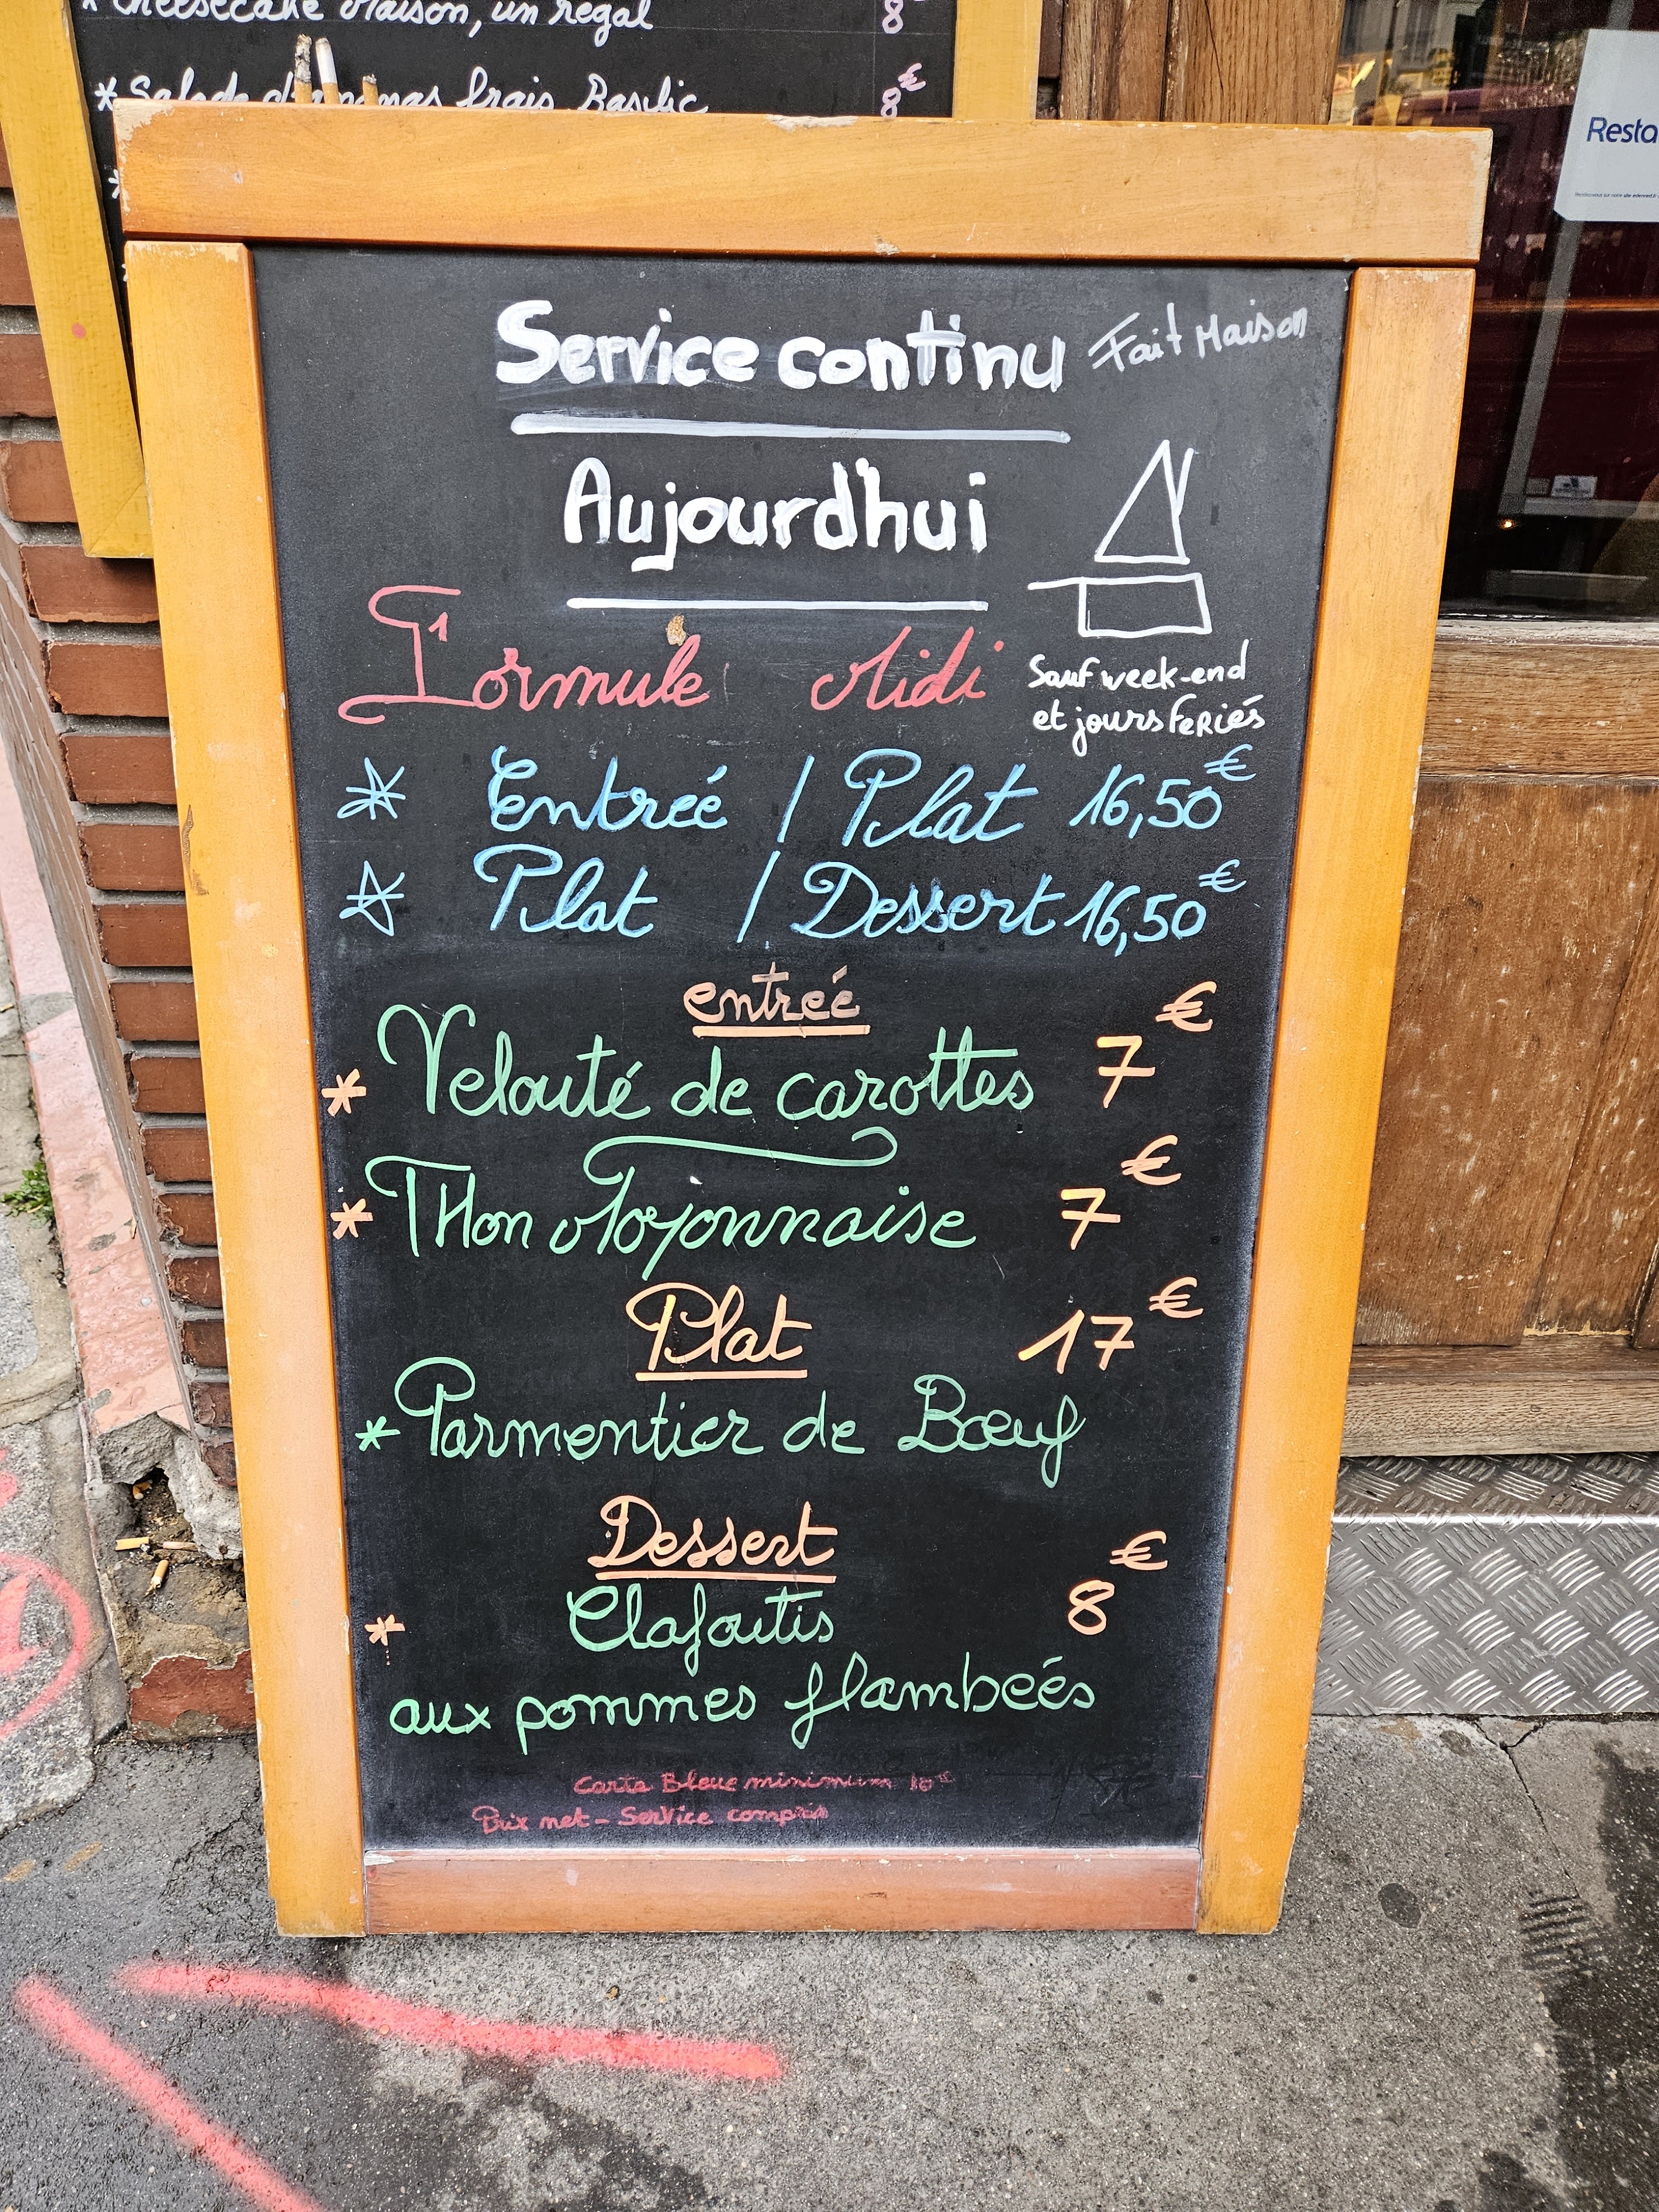 * Cheesecake Maison, un régal 8
* Salade d'ananas frais Basilic 8€
Resta
Service continu Fait Maison
Aujourd'hui
Formule Midi
Sauf week-end
et jours Feriés
* Entreé / Plat 16,50€
* Plat / Dessert 16,50€
entreé
* Velouté de carottes 7€
* THon Mayonnaise 7€
Plat 17€
* Parmentier de Bœuf
Dessert
* Clafoutis 8€
aux pommes flambeés
Carte Bleue minimum
Prix net - Service compris